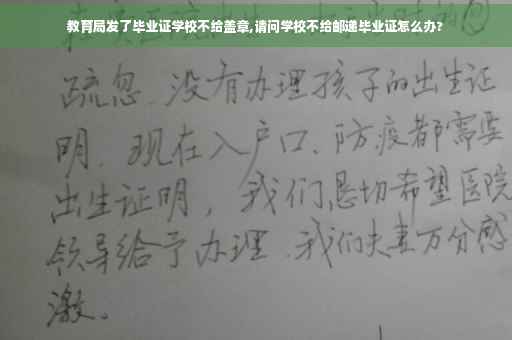 教育局发了毕业证学校不给盖章,请问学校不给邮递毕业证怎么办?
疏忽.没有办理孩子的出生证
明.现在入户口、防疫都需要
出生证明，我们恳切希望医院
领导给予办理.我们夫妻万分感
激。